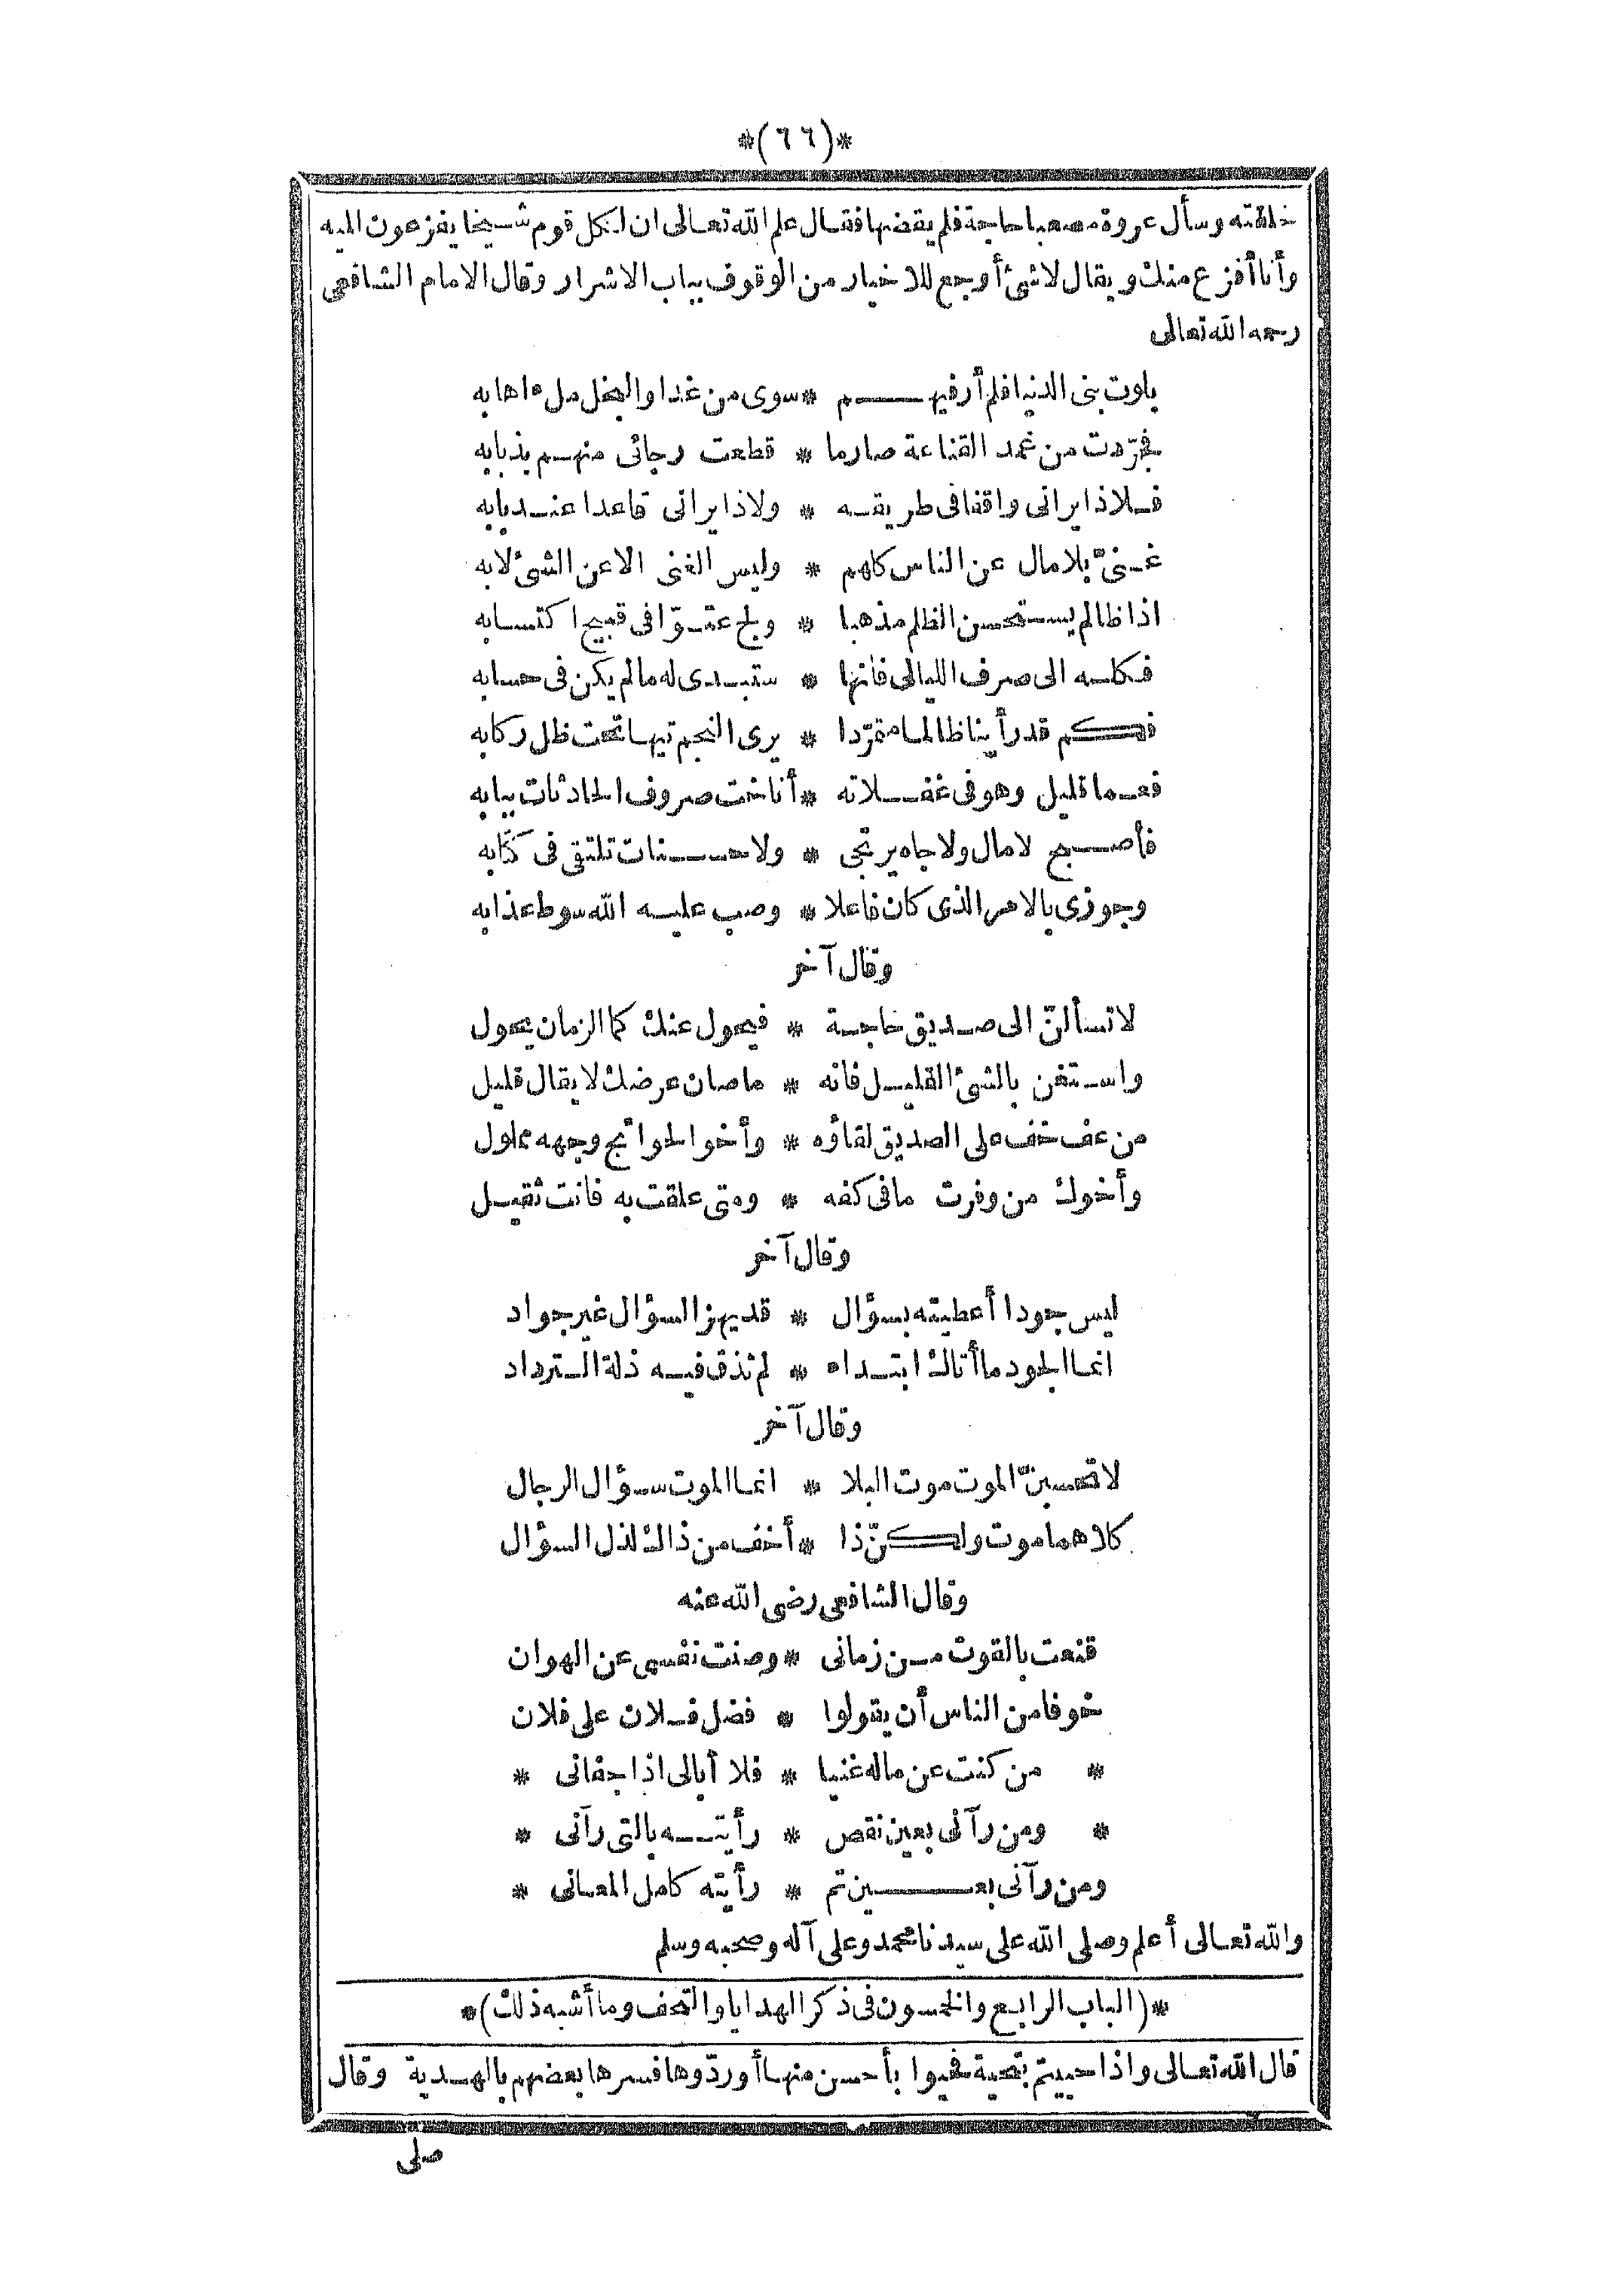 *(٦٦)*
خلقته وسأل عروة مصعبا حاجة فلم يقضها فقال علم الله تعالى ان لكل قوم شيخا يفزعون اليه
وأنا أفزع منك ويقال لا شئ أوجع للاخيار من الوقوف بباب الاشرار وقال الامام الشافعى
رحمه الله تعالى
بلوت بنى الدنيا فلم أر فيهم * سوى من غدا والبخل ملء اهابه
فجرّدت من غمد القناعة صارما * قطعت رجائى منهم بذبابه
فلا ذا يرانى واقفا فى طريقه * ولا ذا يرانى قاعدا عند بابه
غنىّ بلا مال عن الناس كلهم * وليس الغنى الا عن الشئ لا به
اذا ظالم يستحسن الظلم مذهبا * ولج عتوّا فى قبيح اكتسابه
فكله الى صرف الليالى فانها * ستبدى له ما لم يكن فى حسابه
فكم قد رأينا ظالما متمرّدا * يرى النجم تيها تحت ظل ركابه
فعما قليل وهو فى غفلاته * أناخت صروف الحادثات ببابه
فأصبح لا مال ولا جاه يرتجى * ولا حسنات تلتقى فى كتابه
وجوزى بالامر الذى كان فاعلا * وصب عليه الله سوط عذابه
وقال آخر
لا تسألنّ الى صديق حاجة * فيحول عنك كما الزمان يحول
واستغن بالشئ القليل فانه * ما صان عرضك لا يقال قليل
من عف خف على الصديق لقاؤه * وأخو الحوائج وجهه مملول
وأخوك من وفرت ما فى كفه * ومتى علقت به فانت ثقيل
وقال آخر
ليس جودا أعطيته بسؤال * قد يهز السؤال غير جواد
انما الجود ما أتاك ابتداء * لم تذق فيه ذلة الترداد
وقال آخر
لا تحسبنّ الموت موت البلا * انما الموت سؤال الرجال
كلاهما موت ولكنّ ذا * أخف من ذاك لذل السؤال
وقال الشافعى رضى الله عنه
قنعت بالقوت من زمانى * وصنت نفسى عن الهوان
خوفا من الناس أن يقولوا * فضل فلان على فلان
* من كنت عن ماله غنيا * فلا أبالى اذا جفانى *
* ومن رآنى بعين نقص * رأيته بالتى رآنى *
ومن رآنى بعين تم * رأيته كامل المعانى *
والله تعالى أعلم وصلى الله على سيدنا محمد وعلى آله وصحبه وسلم
*(الباب الرابع والخمسون فى ذكر الهدايا والتحف وما أشبه ذلك)*
قال الله تعالى واذا حييتم بتحية فحيوا بأحسن منها أو ردّوها فسرها بعضهم بالهدية وقال
صلى